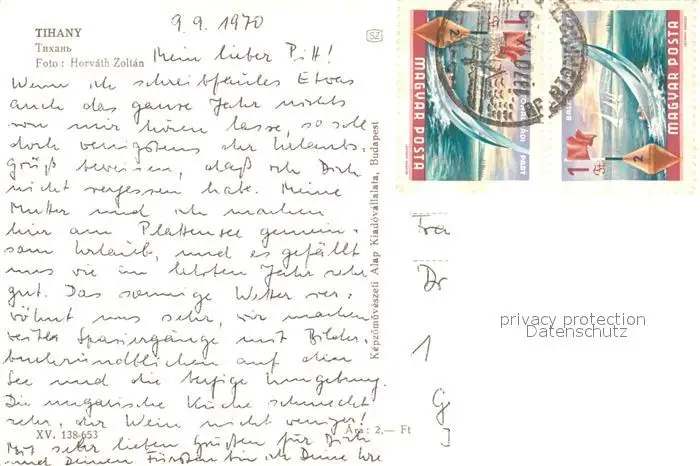 9.9.1970
TIHANY
Тихань
Foto : Horváth Zoltán
Mein lieber Pitt!
Wenn ich schreibfaules Etwas
auch das ganze Jahr nichts
von mir hören lasse, so soll
doch wenigstens der Urlaubs-
gruß beweisen, daß ich Dich
nicht vergessen habe. Meine
Mutter und ich machen
hier am Plattensee gemein-
sam Urlaub, und es gefällt
uns wie im letzten Jahr sehr
gut. Das sonnige Wetter ver-
wöhnt uns sehr, wir machen
weite Spaziergänge mit Bilder-
buchrundblicken auf den
See und die bergige Umgebung.
Die ungarische Küche schmeckt
sehr, der Wein nicht weniger!
XV. 138-653
Ára: 2.— Ft
Mit sehr lieben Grüßen für Dich
und Deinen Fürsten bin ich Deine
Képzőművészeti Alap Kiadóvállalata, Budapest
SZ
MAGYAR POSTA
1
2
MAGYAR POSTA
1
2
1970
Dr
1
G
privacy protection
Datenschutz